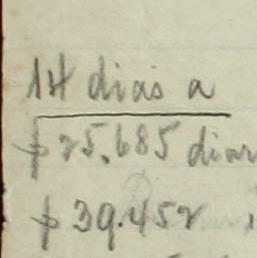 14 dias a
$ 25.685 diar
$ 39.452